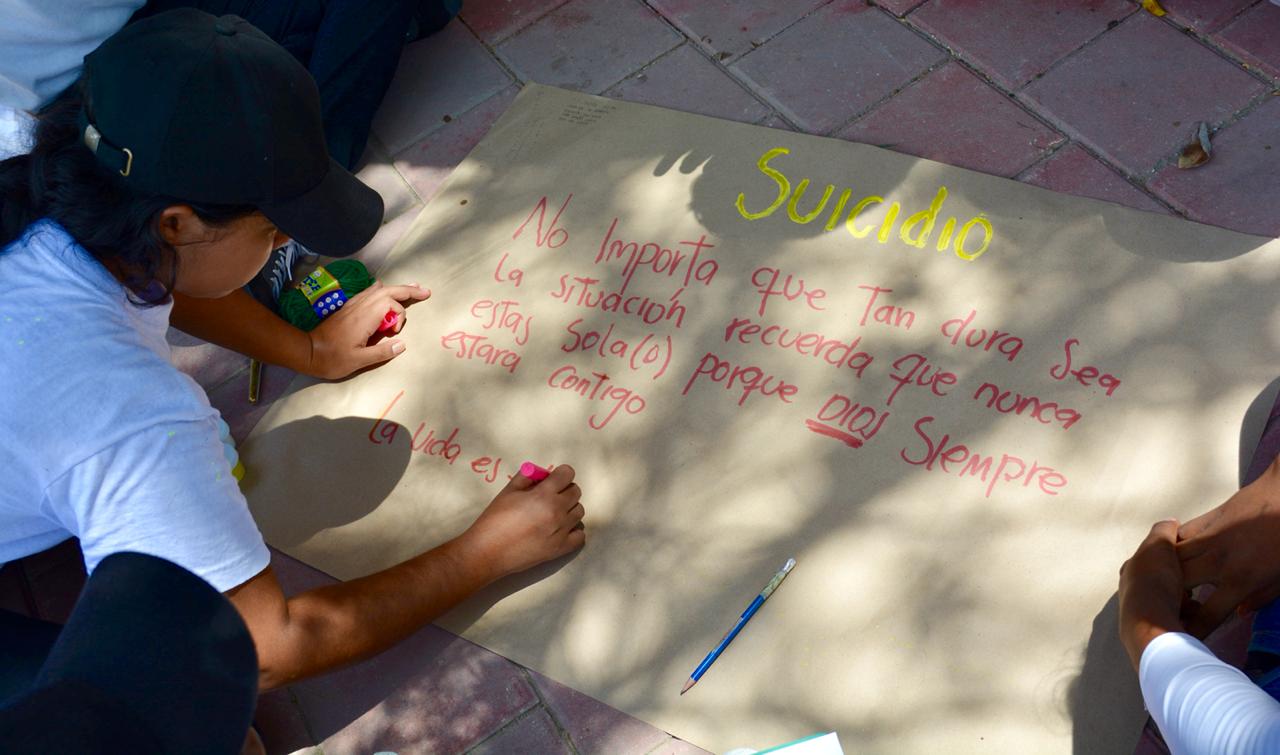 Suicidio
No Importa que Tan dura Sea
La situación recuerda que nunca
estas Sola(o) porque DIOS Siempre
estara contigo
La vida es